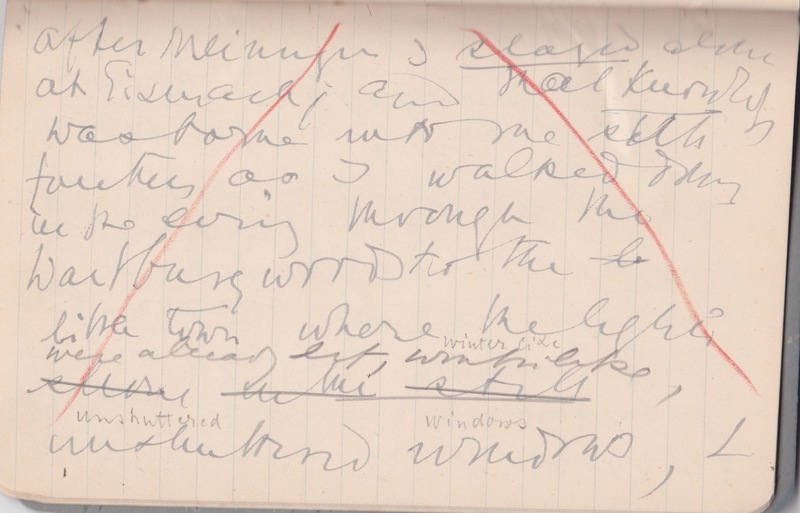 after Meiningen I stayed alone
at Eisenach; and that knowledge
was borne into me
as I walked down
in the evening through the
Wartburg woods to the
little town where the lights
winterlike
were already lit, winterlike,
in the still
unshuttered windows
unshuttered windows,